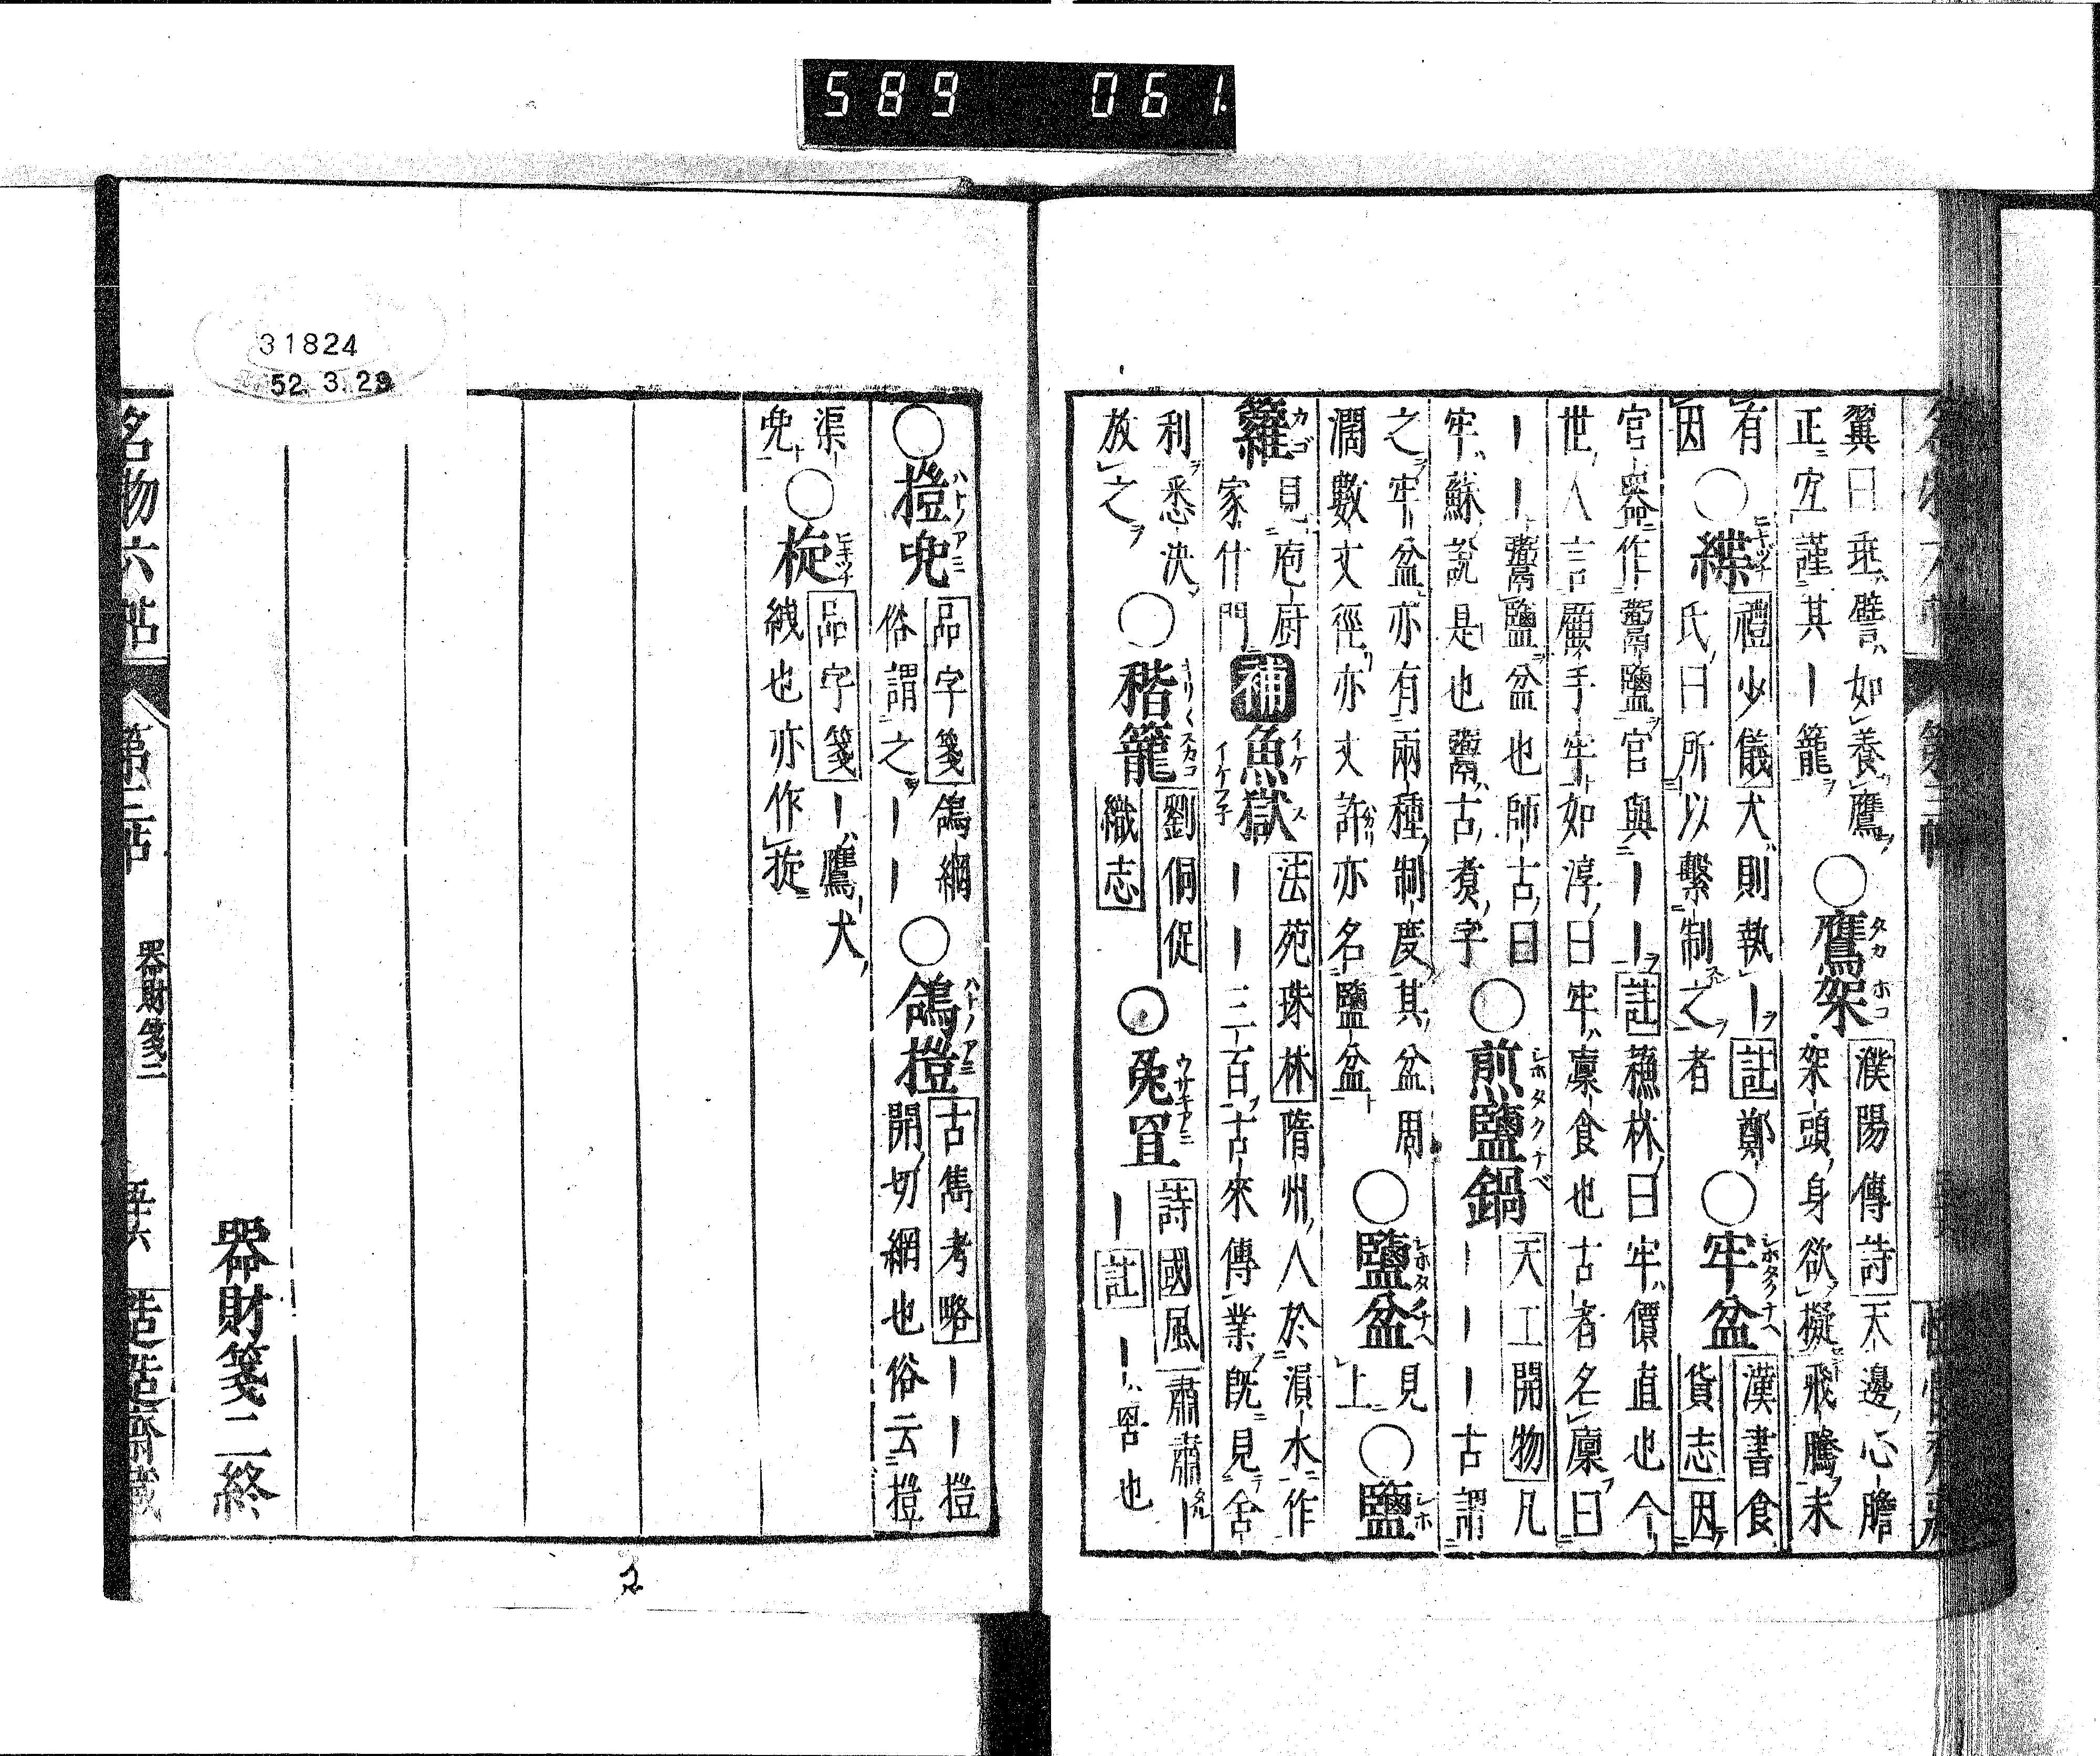 589 061
翼曰垂譬如養鷹○鷹架濮陽傳詩天邊心膽
正宜謹其｜籠 架頭身欲擬飛騰未
有○緤禮少儀犬則執｜註鄭○牢盆漢書食
因 氏曰所以繫制之者 貨志因
官器作鬻鹽官與｜｜註蘇林曰牢價直也今
世人言顧手牢如淳曰牢廩食也古者名廩曰
｜｜鬻鹽盆也師古曰○煎鹽鍋天工開物凡
牢蘇說是也鬻古煮字 ｜｜｜古謂
之牢盆亦有兩種制度其盆周○鹽盆見○鹽
濶數丈徑亦丈許亦名鹽盆 上
籮見庖廚補魚獄法苑珠林隋州人於溳水作
家什門 ｜｜三百古來傳業旣見舍
利悉決○稭籠劉侗促○兔罝詩國風肅肅｜
放之 織志 ｜註｜｜罟也
○㨟㲋品字箋鴿網○鴿㨟古雋考略｜｜㨟
俗謂之｜｜ 開切網也俗云㨟
渠○㯀品字箋｜鷹犬
㲋 綫也亦作㨁
器財箋二終
名物六帖 第二帖 器財箋二 五十六
31824
52. 3. 29
2